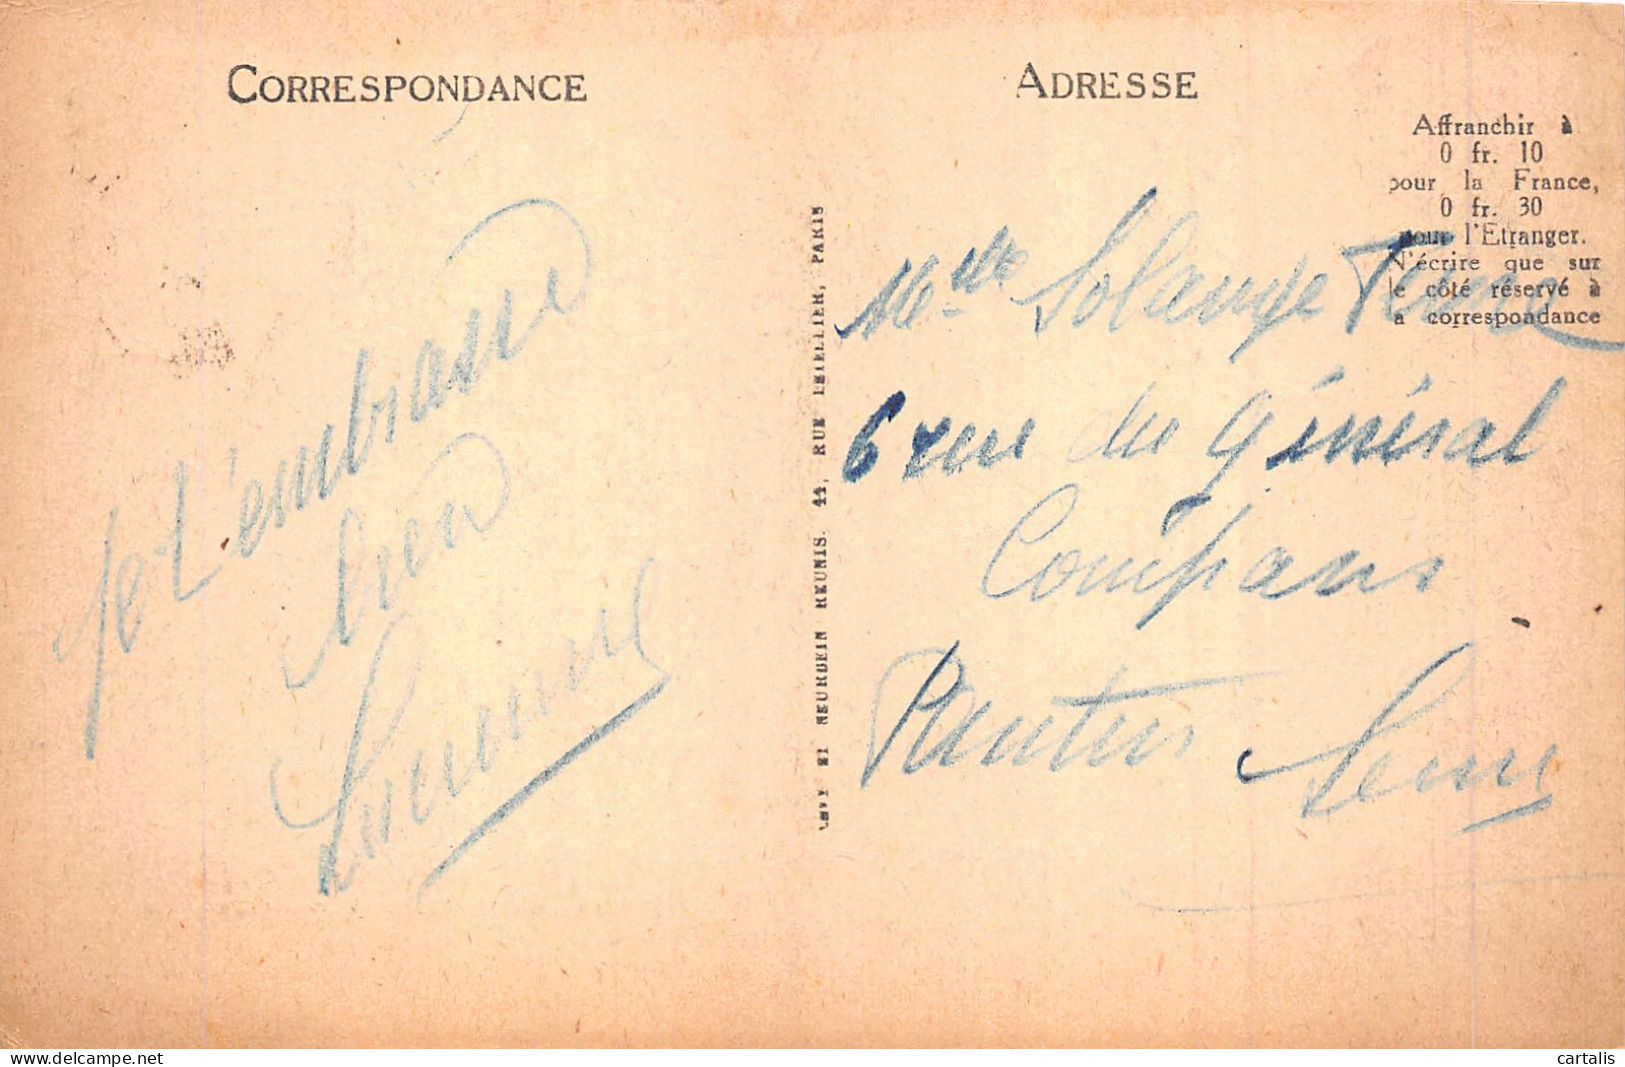 CORRESPONDANCE
ADRESSE
Affranchir à
0 fr. 10
pour la France,
0 fr. 30
pour l'Etranger.
N'écrire que sur
le côté réservé à
la correspondance
Je t'embrasse
bien
Mlle Solange
6 rue du Général
Compans
Pantin Seine
LEVY ET NEURDEIN REUNIS, 44, RUE LETELLIER, PARIS
cartalis